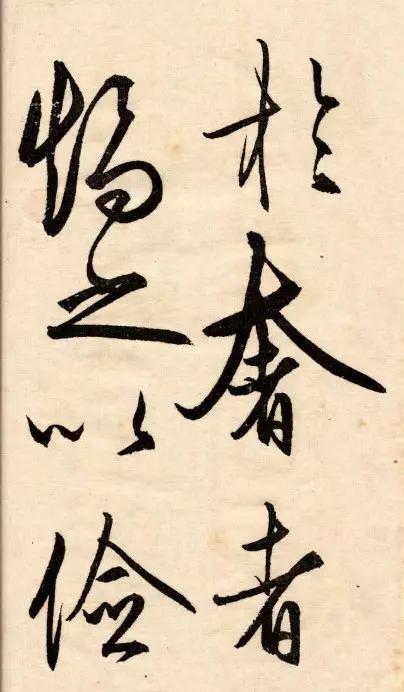 於奢者
矯之以儉